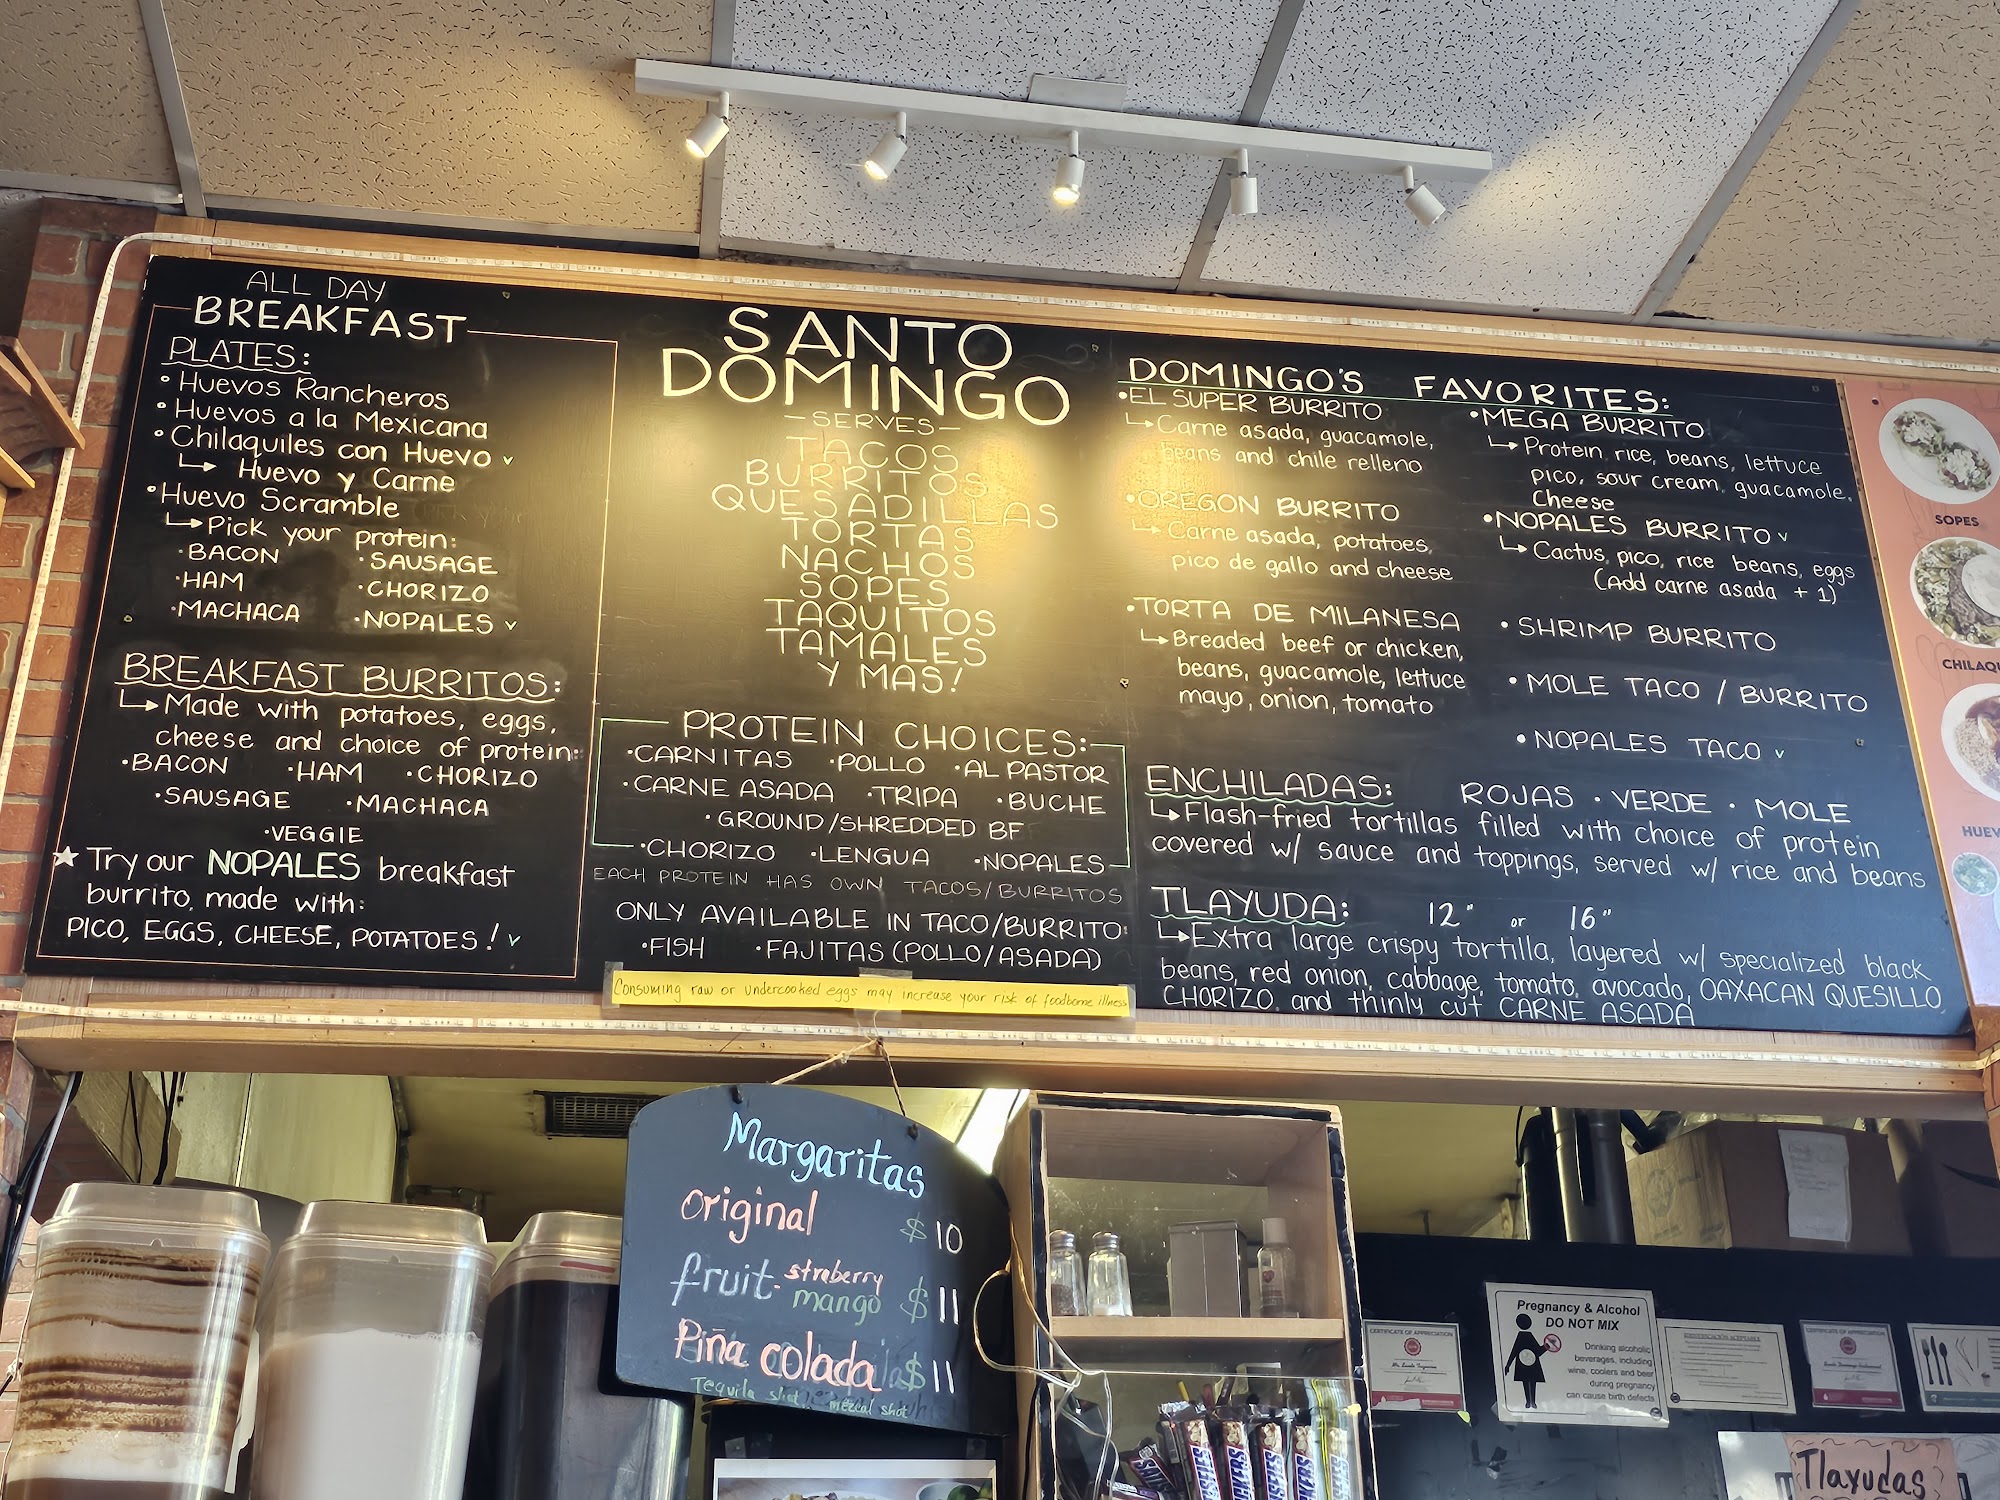 ALL DAY
BREAKFAST
PLATES:
• Huevos Rancheros
• Huevos a la Mexicana
• Chilaquiles con Huevo v
↳ Huevo y Carne
• Huevo Scramble
↳ Pick your protein:
· BACON · SAUSAGE
· HAM · CHORIZO
· MACHACA · NOPALES v
BREAKFAST BURRITOS:
↳ Made with potatoes, eggs,
cheese and choice of protein:
· BACON · HAM · CHORIZO
· SAUSAGE · MACHACA
· VEGGIE
★ Try our NOPALES breakfast
burrito, made with:
PICO, EGGS, CHEESE, POTATOES! v
SANTO
DOMINGO
— SERVES —
TACOS
BURRITOS
QUESADILLAS
TORTAS
NACHOS
SOPES
TAQUITOS
TAMALES
Y MAS!
PROTEIN CHOICES:
· CARNITAS · POLLO · AL PASTOR
· CARNE ASADA · TRIPA · BUCHE
· GROUND/SHREDDED BF
· CHORIZO · LENGUA · NOPALES
EACH PROTEIN HAS OWN TACOS/BURRITOS
ONLY AVAILABLE IN TACO/BURRITO:
· FISH · FAJITAS (POLLO/ASADA)
Consuming raw or undercooked eggs may increase your risk of foodborne illness
DOMINGO'S FAVORITES:
• EL SUPER BURRITO
↳ Carne asada, guacamole,
beans and chile relleno
• OREGON BURRITO
↳ Carne asada, potatoes,
pico de gallo and cheese
• TORTA DE MILANESA
↳ Breaded beef or chicken,
beans, guacamole, lettuce
mayo, onion, tomato
• MEGA BURRITO
↳ Protein, rice, beans, lettuce
pico, sour cream, guacamole,
Cheese
• NOPALES BURRITO v
↳ Cactus, pico, rice beans, eggs
(Add carne asada + 1)
• SHRIMP BURRITO
• MOLE TACO / BURRITO
• NOPALES TACO v
ENCHILADAS: ROJAS · VERDE · MOLE
↳ Flash-fried tortillas filled with choice of protein
covered w/ sauce and toppings, served w/ rice and beans
TLAYUDA: 12" or 16"
↳ Extra large crispy tortilla, layered w/ specialized black
beans, red onion, cabbage, tomato, avocado, OAXACAN QUESILLO,
CHORIZO, and thinly cut CARNE ASADA
SOPES
CHILAQU
HUEV
Margaritas
original $10
fruit - straberry
mango $11
Piña colada $11
Tequila shot mezcal shot
Pregnancy & Alcohol
DO NOT MIX
Drinking alcoholic
beverages, including
wine, coolers and beer
during pregnancy
can cause birth defects
CERTIFICATE OF APPRECIATION
CERTIFICATE OF APPRECIATION
SNICKERS
Tlayudas